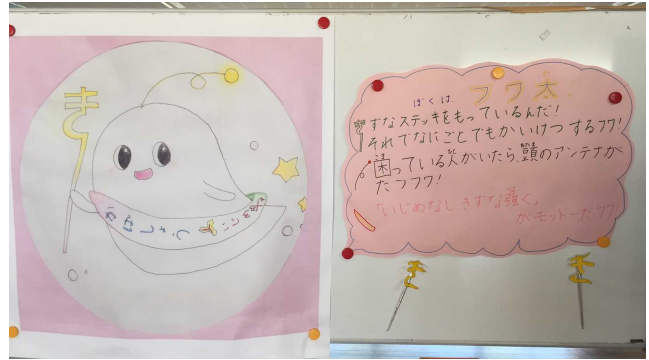 き
ぼくは、フワ太
きずなステッキをもっているんだ!
それでなにごとでもかいけつするフワ!
困っている人がいたら、頭のアンテナが
たつフワ!
「いじめなし、きずな強く。」
がモットーだフワ!
き
き